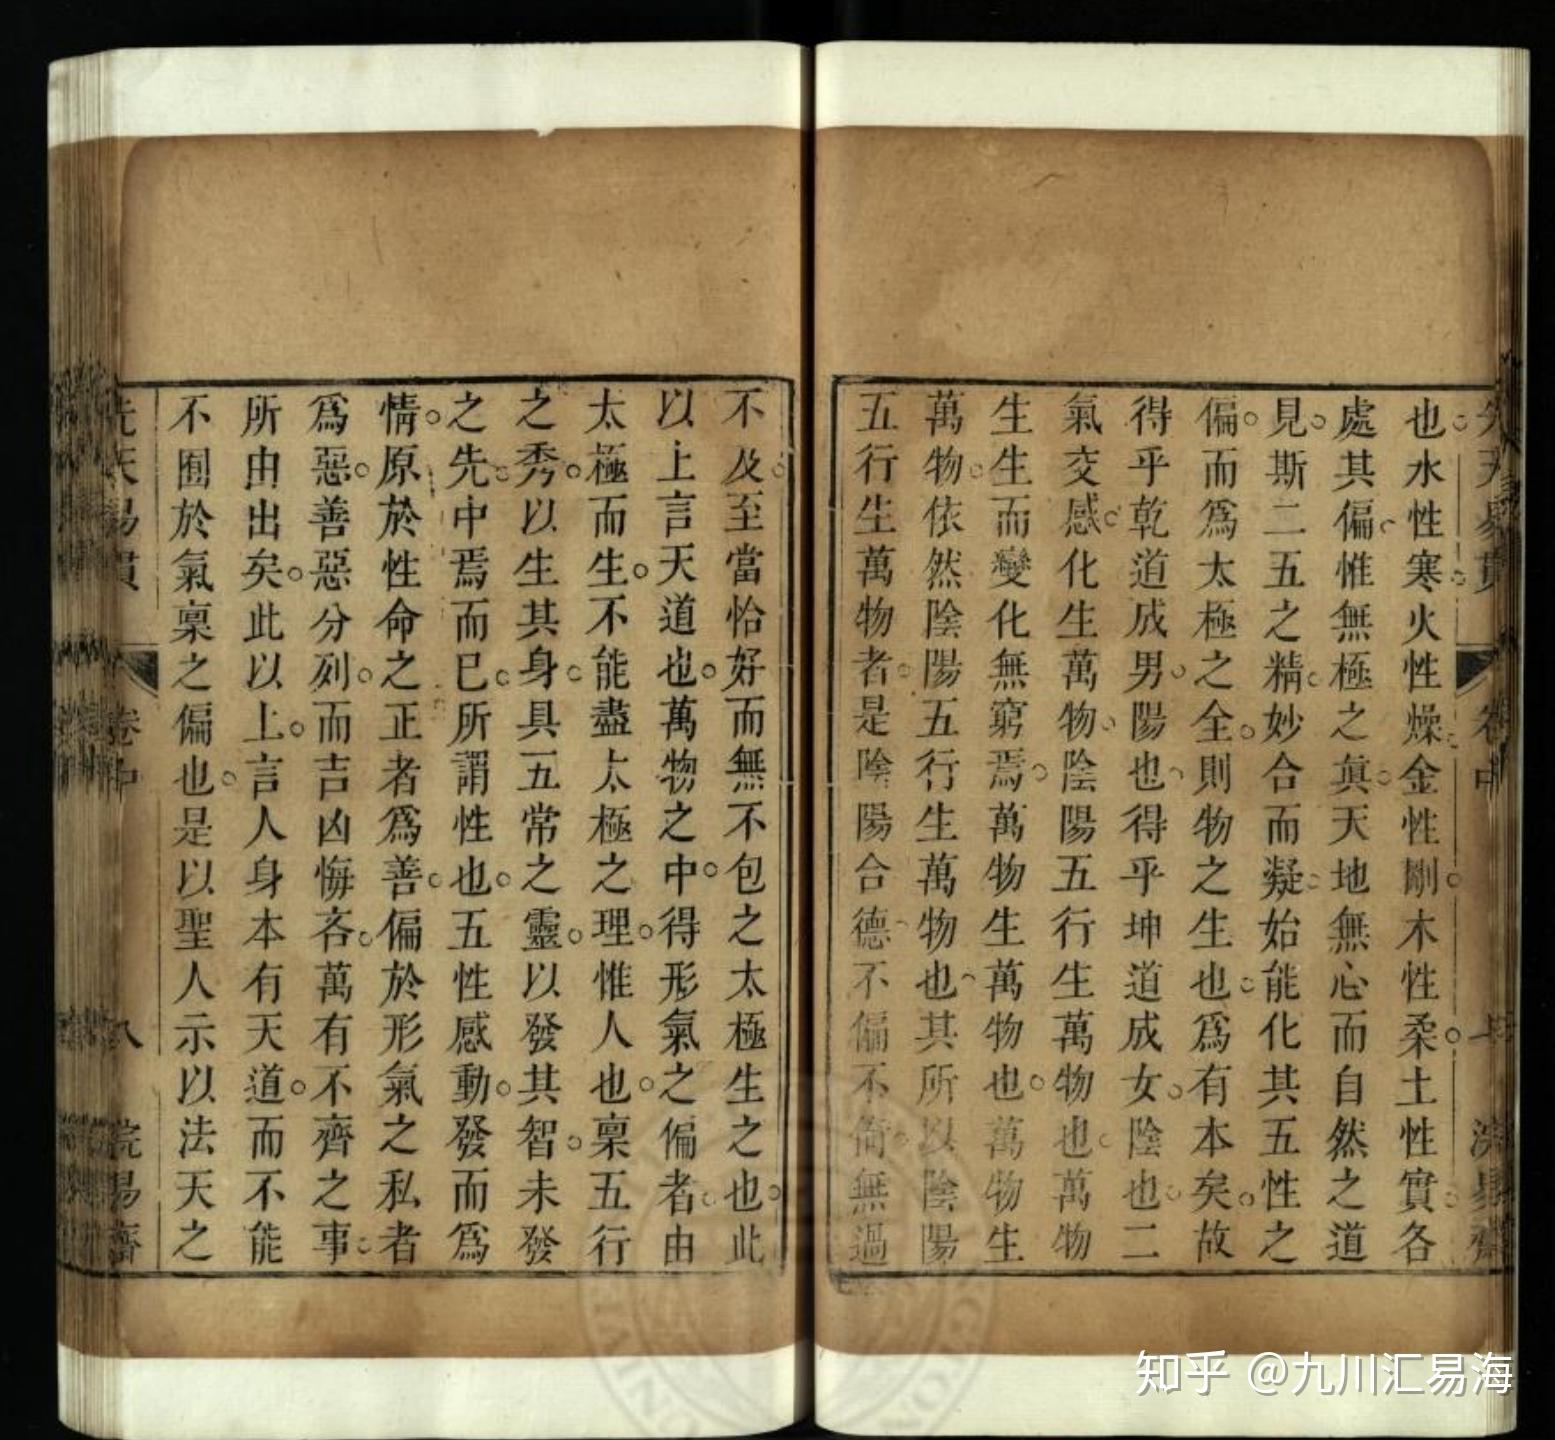 先天易貫 卷中 七
也水性寒火性燥金性剛木性柔土性實各
處其偏惟無極之真天地無心而自然之道
見斯二五之精妙合而凝始能化其五性之
偏而爲太極之全則物之生也爲有本矣故
得乎乾道成男陽也得乎坤道成女陰也二
氣交感化生萬物陰陽五行生萬物也萬物
生生而變化無窮焉萬物生萬物也萬物生
萬物依然陰陽五行生萬物也其所以陰陽
五行生萬物者是陰陽合德不偏不倚無過
不及至當恰好而無不包之太極生之也此
以上言天道也萬物之中得形氣之偏者由
太極而生不能盡太極之理惟人也稟五行
之秀以生其身具五常之靈以發其智未發
之先中焉而已所謂性也五性感動發而爲
情原於性命之正者爲善偏於形氣之私者
爲惡善惡分列而吉凶悔吝萬有不齊之事
所由出矣此以上言人身本有天道而不能
不囿於氣稟之偏也是以聖人示以法天之
先天易貫 卷中 八
知乎 @九川汇易海